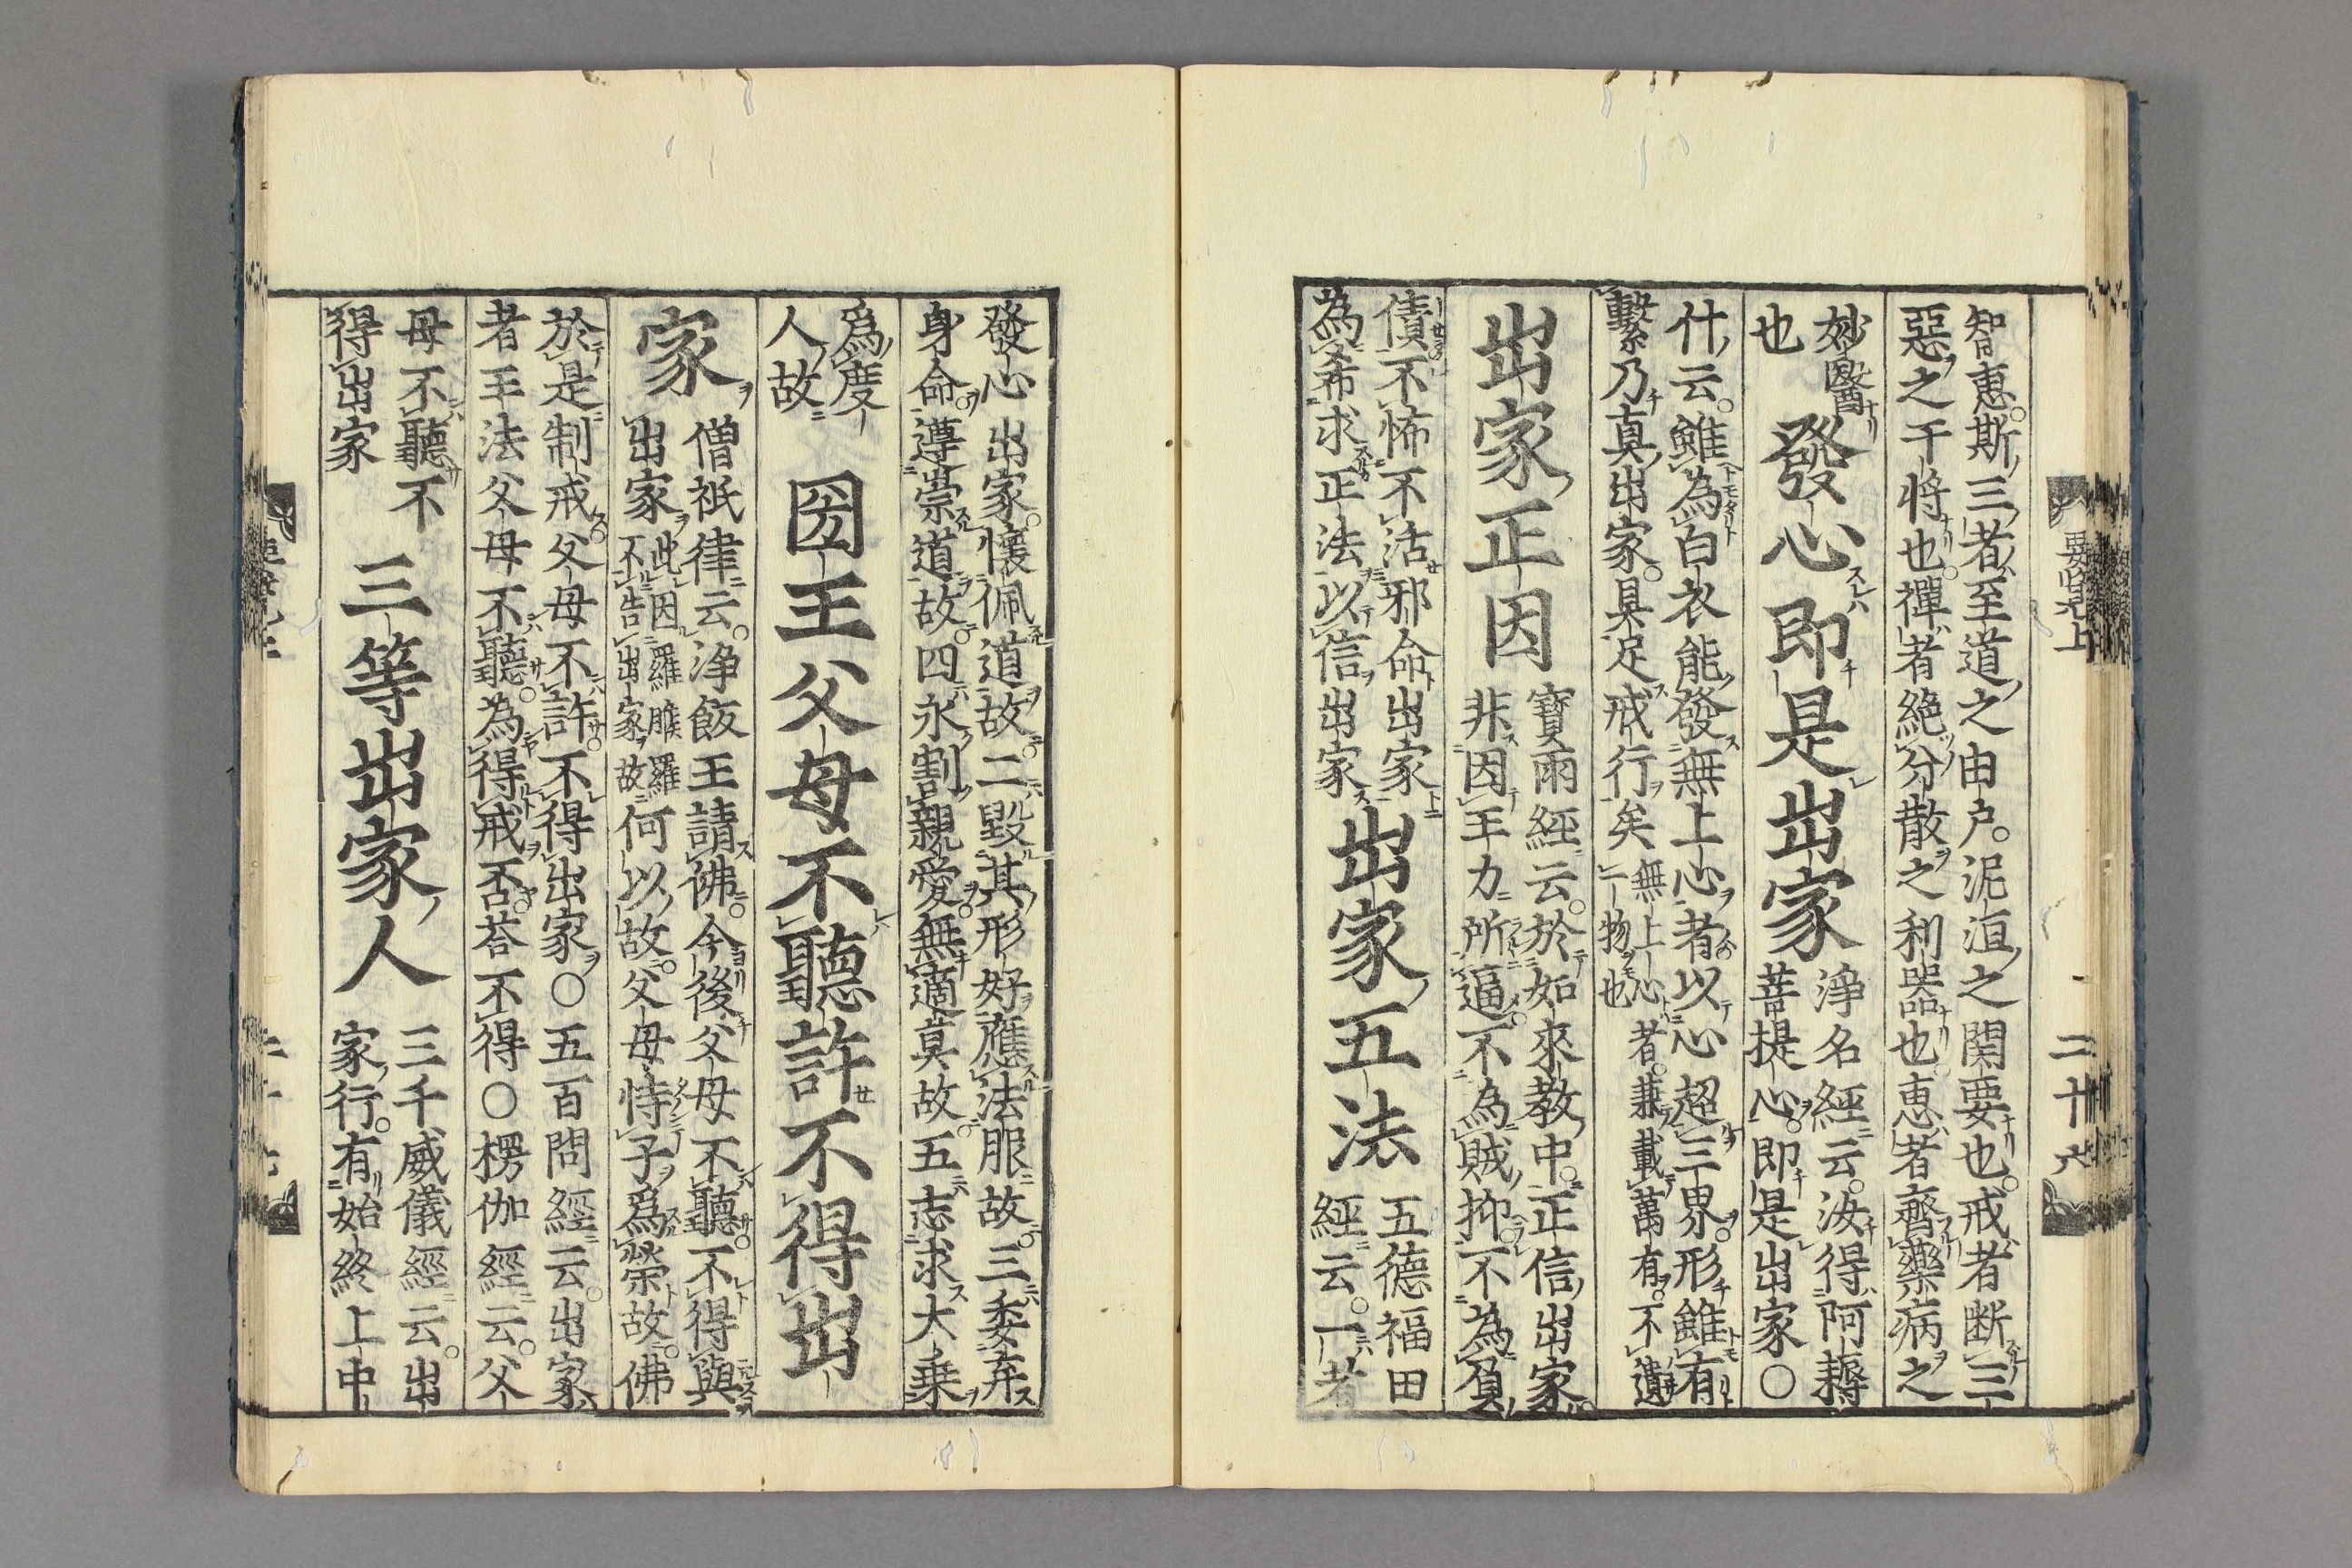 要覽上
二十八
智惠。斯三者至道之由戸。泥洹之関要也。戒者断三
惡之干将也。禪者絶分散之利器也。惠者齊藥病之
妙醫也
發心即是出家
淨名經云。汝得阿耨
菩提心。即是出家〇
什云。雖為白衣能發無上心者。以心超三界。形雖有
繫乃真出家。具足戒行矣
無上心
一物也
者。兼載萬有。不遺
出家正因
寶雨經云。於如來教中。正信出家。
非因王力所逼。不為賊抑。不為負
債。不怖不活邪命出家
為希求正法。以信出家
出家五法
五德福田
經云。一者
發心出家。懷佩道故。二毀其形好應法服故。三委弃
身命。遵崇道故。四永割親愛。無適莫故。五志求大乗
爲度
人故
国王父母不聽許不得出
家
僧祇律云。淨飯王請佛。今後父母不聽。不得與
出家
此因羅睺羅
不告出家故
何以故。父母恃子爲榮故。佛
於是制戒。父母不許。不得出家〇五百問經云。出家
者王法父母不聽。為得戒否。荅不得〇楞伽經云。父
母不聽不
得出家
三等出家人
三千威儀經云。出
家行。有始終上中